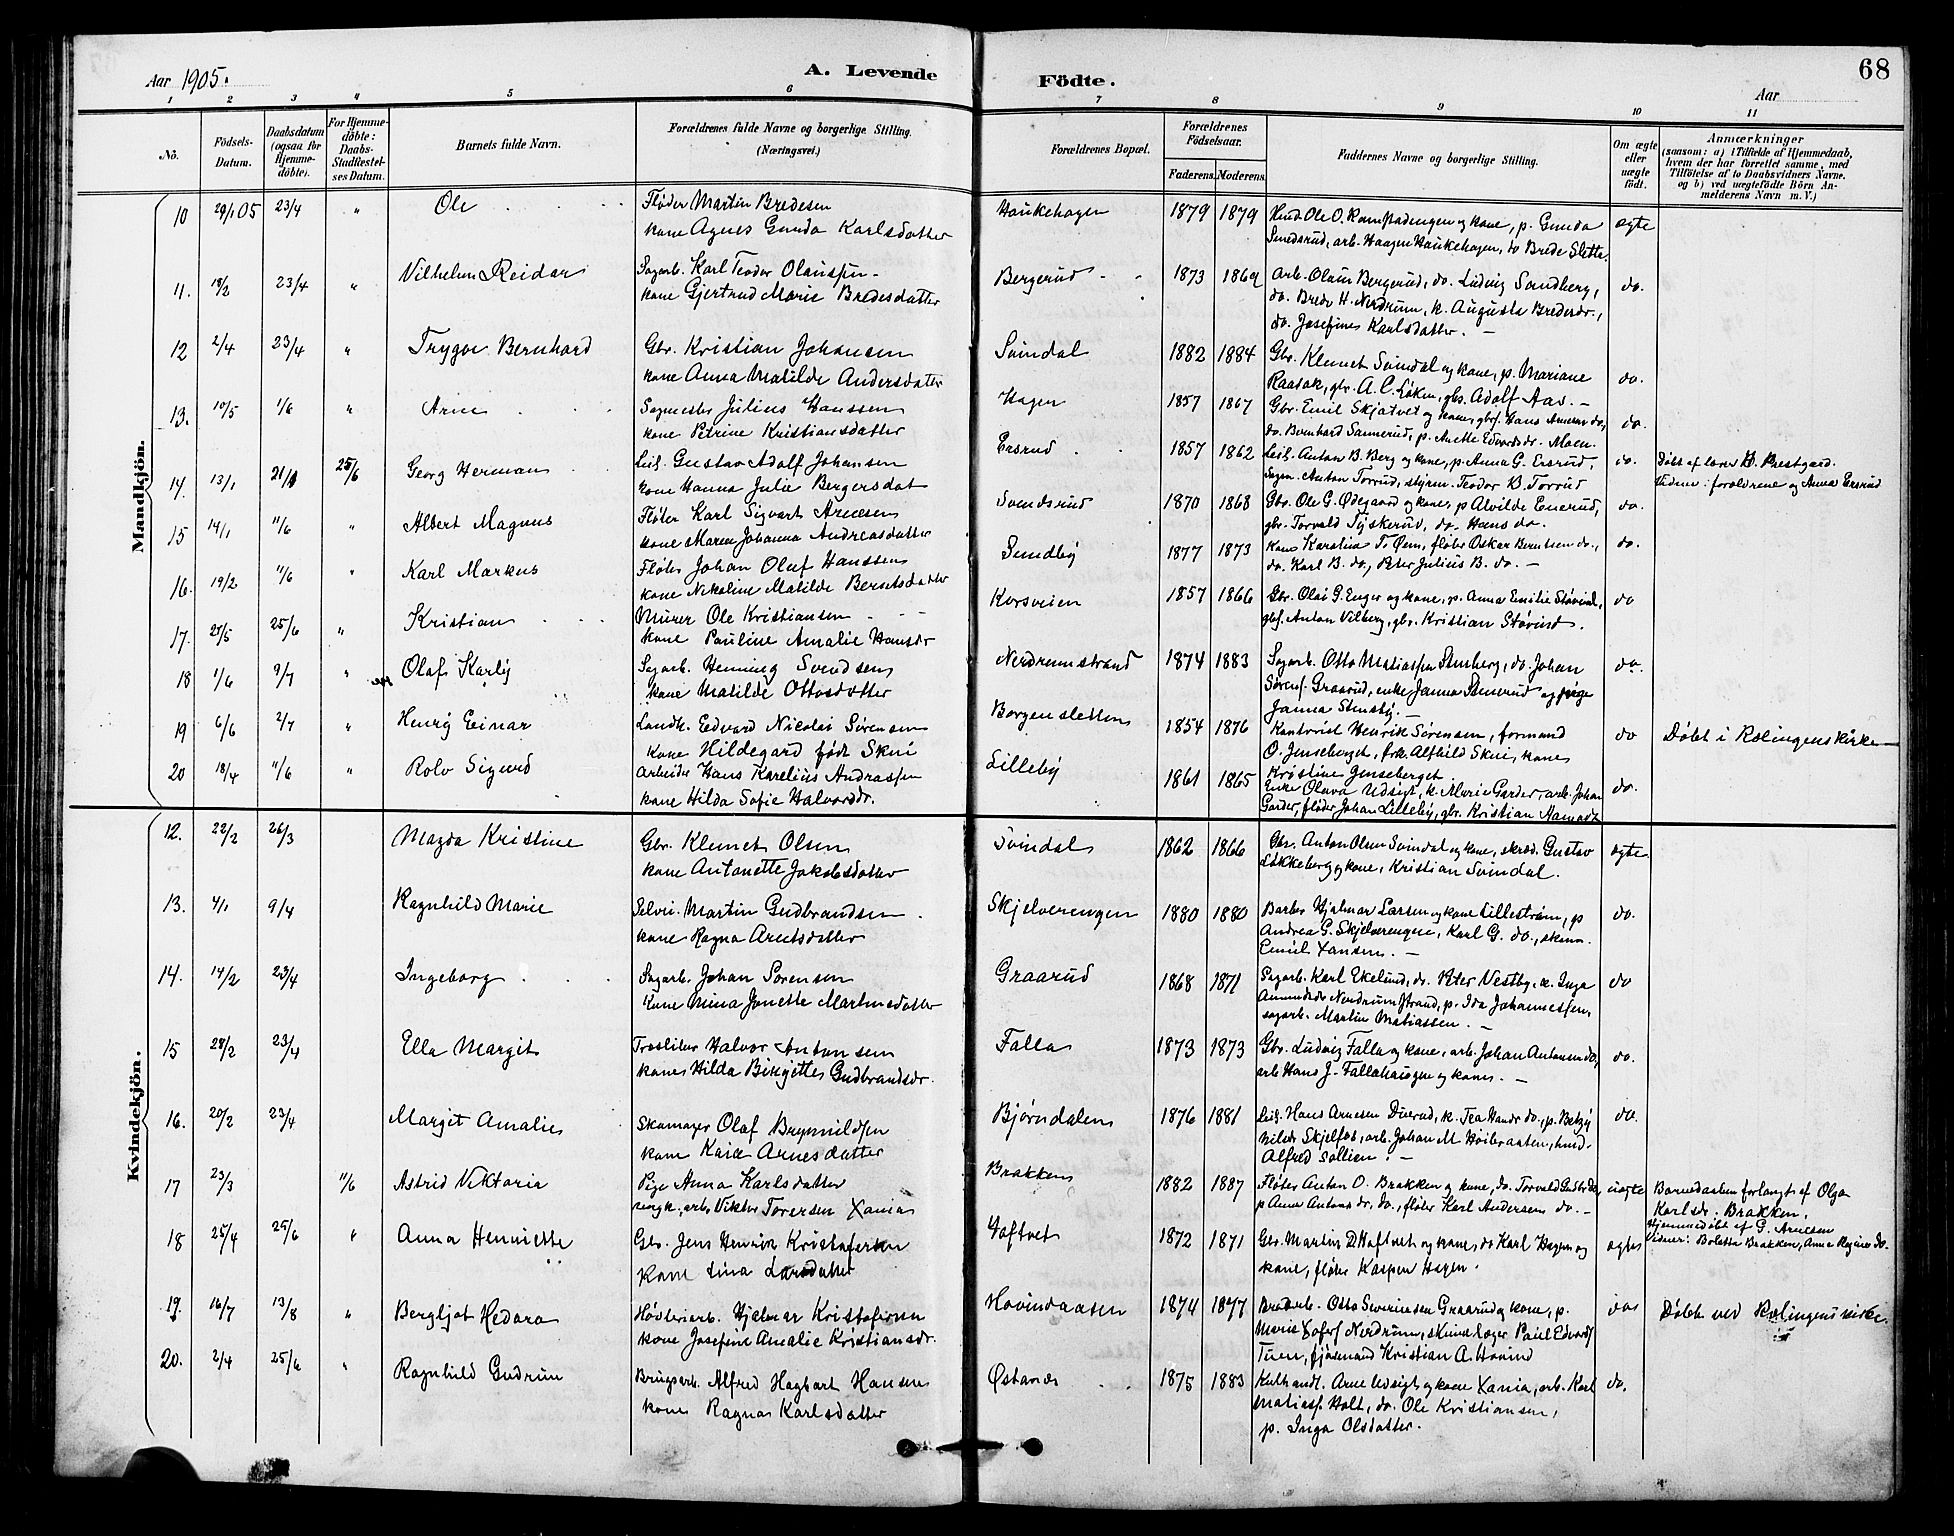 Aar 1905.
A. Levende
Födte.
68
Aar
1 2 3 4 5 6 7 8 9 10 11
No.
Födsels-
Datum.
Daabsdatum
(ogsaa for
Hjemme-
döbte).
For Hjemme-
döbte:
Daabs-
Stadfæstel-
ses Datum.
Barnets fulde Navn.
Forældrenes fulde Navne og borgerlige Stilling.
(Næringsvei.)
Forældrenes Bopæl.
Forældrenes
Födselsaar.
Faderens. Moderens.
Faddernes Navne og borgerlige Stilling.
Om ægte
eller
uægte
födt.
Anmærkninger
(saasom: a) i Tilfælde af Hjemmedaab,
hvem der har forrettet samme, med
Tilföielse af to Daabsvidners Navne.
og b) ved uægtefödte Börn An-
melderens Navn m. V.)
Mandkjön.
10 29/1 05 23/4 " Ole Fløder Martin Bredesen Haukehagen 1879 1879 ægte
kone Agnes Gunda Karlsdatter Smedsrud, arb. Haagen Haukehagen, do Brede Slette.
11. 18/2 23/4 " Vilhelm Reidar Sagarb. Karl Teodor Olaussen Bergerud 1873 1869 Arb. Olaus Bergerud, do. Ludvig Sandberg, do.
kone Gjertrud Marie Bredesdatter do. Brede H. Nerdrum, k. Augusta Bredesdr.,
do. Josefine Karlsdatter.
12 2/4 23/4 " Trygve Bernhard Gbr. Kristian Johansen Svindal 1882 1884 Gbr. Klemet Svindal og kone, p. Mariane do.
kone Anna Matilde Andersdatter Raasok, gbr. A. C. Løken, gbs. Adolf Aas.
13. 10/5 1/6 " Arne Sagmester Julius Hanssen Hagen 1857 1867 Gbr. Emil Skjatvet og kone, do.
kone Petrine Kristiansdatter do. Bernhard Sannerud, p. Anette Edvardsdr. Moen.
14. 13/1 21/1 25/6 Georg Herman Leil. Gustav Adolf Johansen Ersrud 1857 1862 Leil. Anton B. Berg og kone, p. Anna G. Ersrud, do. Døbt af lærer B. Prestgard.
kone Hanna Julie Bergersdat Anton Torrud, styrm. Teodor B. Torrud Vidner: forældrene og Anna Ersrud
15 14/1 11/6 " Albert Magnus Fløter Karl Sigvart Arnesen Svendsrud 1870 1868 Gbr. Ole G. Ødegaard og kone, p Alvilde Enerud, do.
kone Maren Johanna Andreasdatter gbr. Torvald Tyskerud, do. Hans do.
16. 19/2 11/6 " Karl Markus Fløter Johan Oluf Hanssen Sundby 1877 1873 Kone Karolina T. Øen, fløter Oskar Berntsen do., do.
kone Nikoline Matilde Berntsdatter do. Karl B. do., Peter Julius B. do.
17. 25/5 25/6 " Kristian Murer Ole Kristiansen Korsveien 1857 1866 Gbr. Olai G. Enger og kone, p. Anna Emilie Støvind, do
kone Pauline Amalie Hansdr gbf. Anton Vilberg, gbr. Kristian Støvind.
18 1/6 9/7 " Olaf Karly Sagarb. Henning Svendsen Nerdrumstrand 1874 1883 Sagarb. Otto Matiassen Stensberg, do. Johan do.
kone Matilde Ottosdatter Sørens. Graarud, enke Janna Stenerud og pige
Janna Stensby.
19 6/6 2/7 " Henry Einar Landh. Edvard Nicolai Sørensen Borgensletten 1854 1876 Kontorist Henrik Sørensen, formand do Døbt i Rælingens kirke
kone Hildegard født Skui O. Jenseberget, frk. Alfhild Skui, kone
Kristine Jenseberget
20 18/4 11/6 " Rolv Sigurd Arbeider Hans Karelius Andrassen Lilleby 1861 1865 Enke Olava Udsigt, k. Marie Garder, arb. Johan do.
kone Hilda Sofie Halvorsdr. Garder, fløder Johan Lilleby, gbr. Kristian
Kvindekjön.
12. 22/2 26/3 Magda Kristine Gbr. Klemet Olsen Svindal 1862 1866 Gbr. Anton Olsen Svindal og kone, skræd. Gustav ægte
kone Antonette Jakobsdatter Løkkeberg og kone, Kristian Svindal.
13. 4/1 9/4 Ragnhild Marie Selvei. Martin Gudbrandsen Skjelverengen 1880 1880 Barber Hjalmar Larsen og kone Lillestrøm, p do.
kone Ragna Arntsdatter Andrea G. Skjelverengen, Karl G. do., skom.
Emil Xansen.
14. 14/2 23/4 Ingeborg Sagarb. Johan Sørensen Graarud 1868 1871 Sagarb. Karl Ekelund, do. Peter Vestby, k. Inga do
kone Mina Jonette Martinsdatter Amundsdr Nerdrumstrand, p. Ida Johannessen,
sagarb. Martin Matiassen.
15 28/2 23/4 Ella Margit Træsliber Halvor Antonsen Falla 1873 1873 Gbr. Ludvig Falla og kone, arb. Johan Antonsen do, do.
kone Hilda Birgitte Gudbrandsdr. arb Hans J. Fallahaugen og kone.
16. 20/2 23/4 Margit Amalie Skomager Olaf Brynildsen Bjørndalen 1876 1881 Leil. Hans Arnesen Duerud, k. Tea Hansdr do., p. Betzy do.
kone Karen Arnesdatter Nilsdr Skjelfos, arb. Johan M Høibraaten, husd.
Alfred Sollien.
17 23/3 11/6 Astrid Viktoria Pige Anna Karlsdatter Brakken 1882 1887 Fløter Anton O. Brakken og kone, do. Torvald Gudbr do, uægte Barnedaaben forlangt af Olga
ungk., arb. Viktor Torersen Xania p Anna Antonsdr. do, fløter Karl Andersen do. Karlsdr. Brakken.
Hjemmedøbt af G. Arnesen
Vidner: Boletta Brakken, Anna Regine do.
18 25/4 25/6 " Anna Henriette Gbr. Jens Henrik Kristofersen Haftvet 1872 1871 Gbr. Martin D. Haftvet og kone, do Karl Hagen og ægte
kone Lina Larsdatter kone, fløter Kasper Hagen.
19. 16/7 13/8 " Bergljot Hedora Høvleriarb. Hjalmar Kristofersen Hovindaasen 1874 1877 Brudarb. Otto Severinsen Graarud og kone, p. do Døbt ved Rælingens kirke.
kone Josefine Amalie Kristiansdr. Marie Xofers Nerdrum, Paul Edvards
Tuen, fjøsmand Kristian A. Hovind
20. 2/4 25/6 " Ragnhild Gudrun Brugsarb. Alfred Hagbart Hansen Østanes 1875 1883 Kulhandl. Arne Udsigt og kone Xania, arb. Karl do.
kone Ragna Karlsdatter Matiass. Holt, do. Ole Kristiansen,
p. Inga Olsdatter.